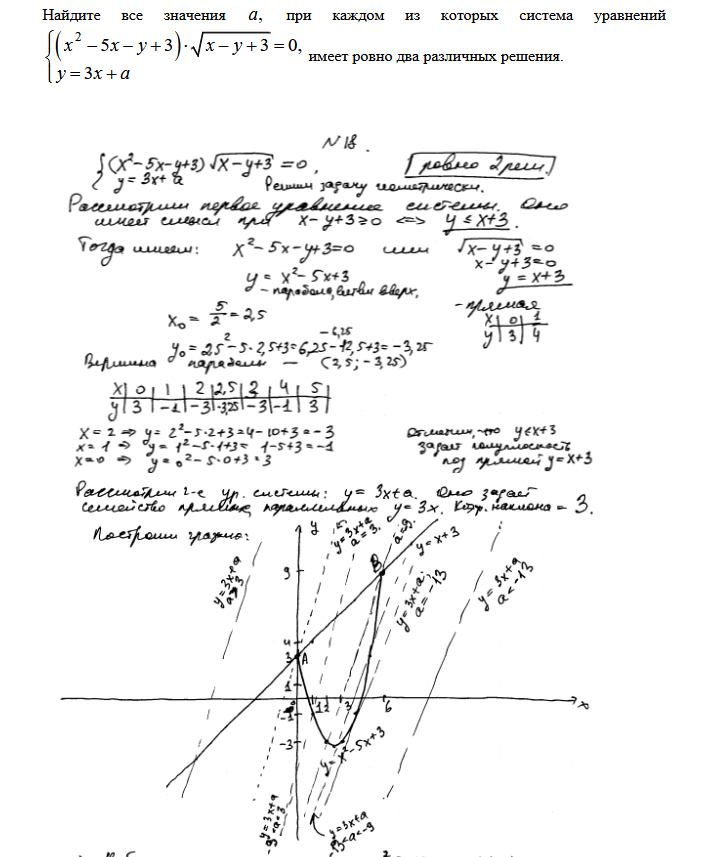 Найдите все значения a, при каждом из которых система уравнений
{(x² – 5x – y + 3)·√(x – y + 3) = 0,
y = 3x + a
имеет ровно два различных решения.
N18.
{(x²–5x–y+3)√(x–y+3) = 0,
y = 3x + a
ровно 2 реш.
Решим задачу геометрически.
Рассмотрим первое уравнение системы. Оно
имеет смысл при x–y+3≥0 <=> y ≤ x+3.
Тогда имеем: x²–5x–y+3=0 или √(x–y+3) = 0
x–y+3=0
y = x²–5x+3 y = x+3
– парабола, ветви вверх, – прямая
x₀ = 5/2 = 2,5
x 0 1
y 3 4
–6,25
y₀ = 2,5²–5·2,5+3=6,25–12,5+3=–3,25
Вершина параболы — (2,5; –3,25)
x 0 1 2 2,5 3 4 5
y 3 –1 –3 –3,25 –3 –1 3
x=2 => y=2²–5·2+3=4–10+3=–3
x=1 => y=1²–5·1+3= 1–5+3=–1
x=0 => y=0²–5·0+3=3
Отметим, что y≤x+3
задает полуплоскость
под прямой y=x+3
Рассмотрим 2-е ур. системы: y = 3x+a. Оно задает
семейство прямых, параллельных y=3x. Коэф. наклона = 3.
Построим графики:
y
y=3x+a
a>3
y=3x+a
a=3.
a=-9.
y=x+3
y=3x+a;
a=-13
y=3x+a
a<-13
9
B
4
3
A
1
1
2
3
6
x
-1
-3
y=x²–5x+3
y=3x+a
-9<a<3
y=3x+a
-13<a<-9